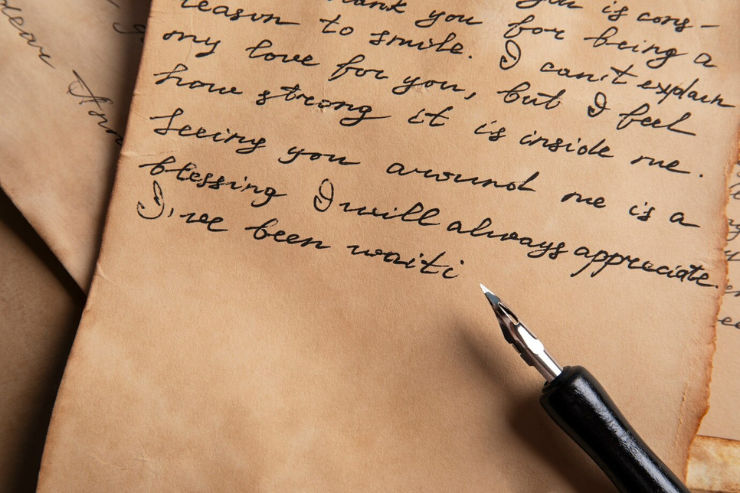 you is cons-
reason to smile. thank you for being a
my love for you, I can't explain
how strong it is inside me. but I feel
Seeing you around me is a
blessing I will always appreciate.
I've been waiti
Dear Ann